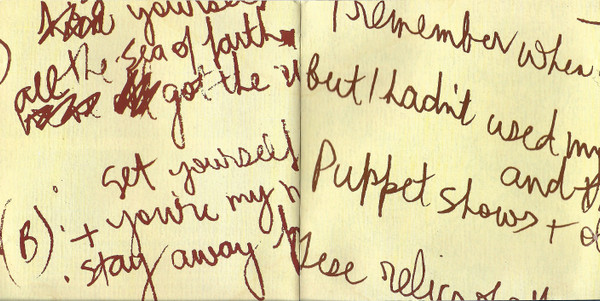 yourself
all the sea of faith
got the
set yourself
(B) + you're my
stay away
I remember when
but I hadn't used my
and
Puppet shows +
these relics of